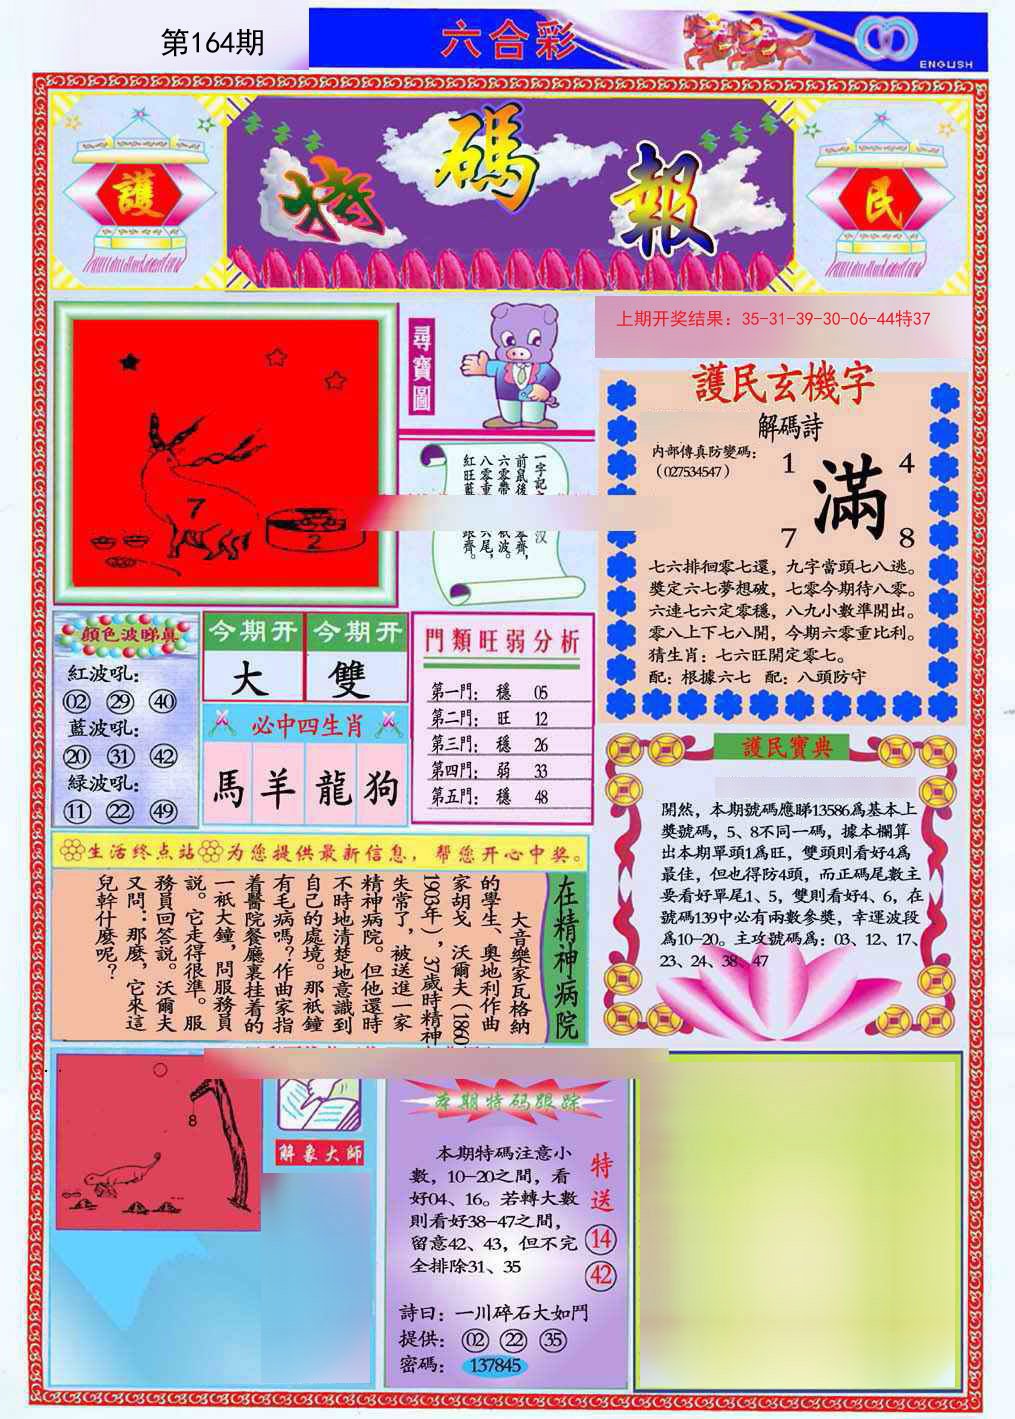 第164期
六合彩
ENGLISH
護
特碼報
民
上期开奖结果：35-31-39-30-06-44特37
尋寶圖
7
2
一字記
漢
前鼠後
零齊，
六零帶
八零重
六尾，
紅旺藍
跟齊。
護民玄機字
解碼詩
内部傳真防變碼：
（027534547）
1
4
滿
7
8
七六排徊零七還，九字當頭七八逃。
獎定六七夢想破，七零今期待八零。
六連七六定零穩，八九小數準開出。
零八上下七八開，今期六零重比利。
猜生肖：七六旺開定零七。
配：根據六七 配：八頭防守
顏色波睇真
紅波吼：
02 29 40
藍波吼：
20 31 42
緑波吼：
11 22 49
今期开 今期开
大 雙
必中四生肖
馬 羊 龍 狗
門類旺弱分析
第一門： 穩 05
第二門： 旺 12
第三門： 穩 26
第四門： 弱 33
第五門： 穩 48
護民寶典
開然，本期號碼應睇13586爲基本上
獎號碼，5、8不同一碼，據本欄算
出本期單頭1爲旺，雙頭則看好4爲
最佳，但也得防4頭，而正碼尾數主
要看好單尾1、5，雙則看好4、6，在
號碼139中必有兩數參獎，幸運波段
爲10-20。主攻號碼爲：03、12、17、
23、24、38、47
生活终点站 为您提供最新信息，帮您开心中奖。
在精神病院
大音樂家瓦格納
的學生、奥地利作曲
家胡戈 沃爾夫（1860
1903年），37歲時精神
失常了，被送進一家
精神病院。但他還時
不時地清楚地意識到
自己的處境。那衹鐘
有毛病嗎？作曲家指
着醫院餐廳裏挂着的
一衹大鐘，問服務員
説。它走得很準。服
務員回答説。沃爾夫
又問：那麼，它來這
兒幹什麼呢？
8
解象大師
本期特码跟踪
本期特碼注意小
數，10-20之間，看
好04、16。若轉大數
則看好38-47之間，
留意42、43，但不完
全排除31、35
特送
14
42
詩曰：一川碎石大如鬥
提供：02 22 35
密碼：137845